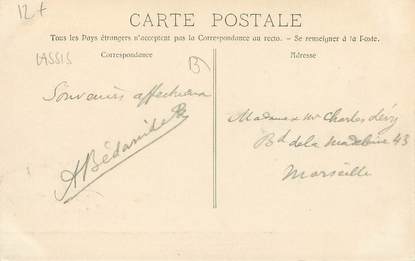 12+
CARTE POSTALE
Tous les Pays étrangers n'acceptent pas la Correspondance au recto. — Se renseigner à la Poste.
Correspondance
Adresse
CASSIS
Souvenirs affectueux
A Bédarride
Madame & Mr Charles Lévy
Bd de la Madeleine 43
Marseille